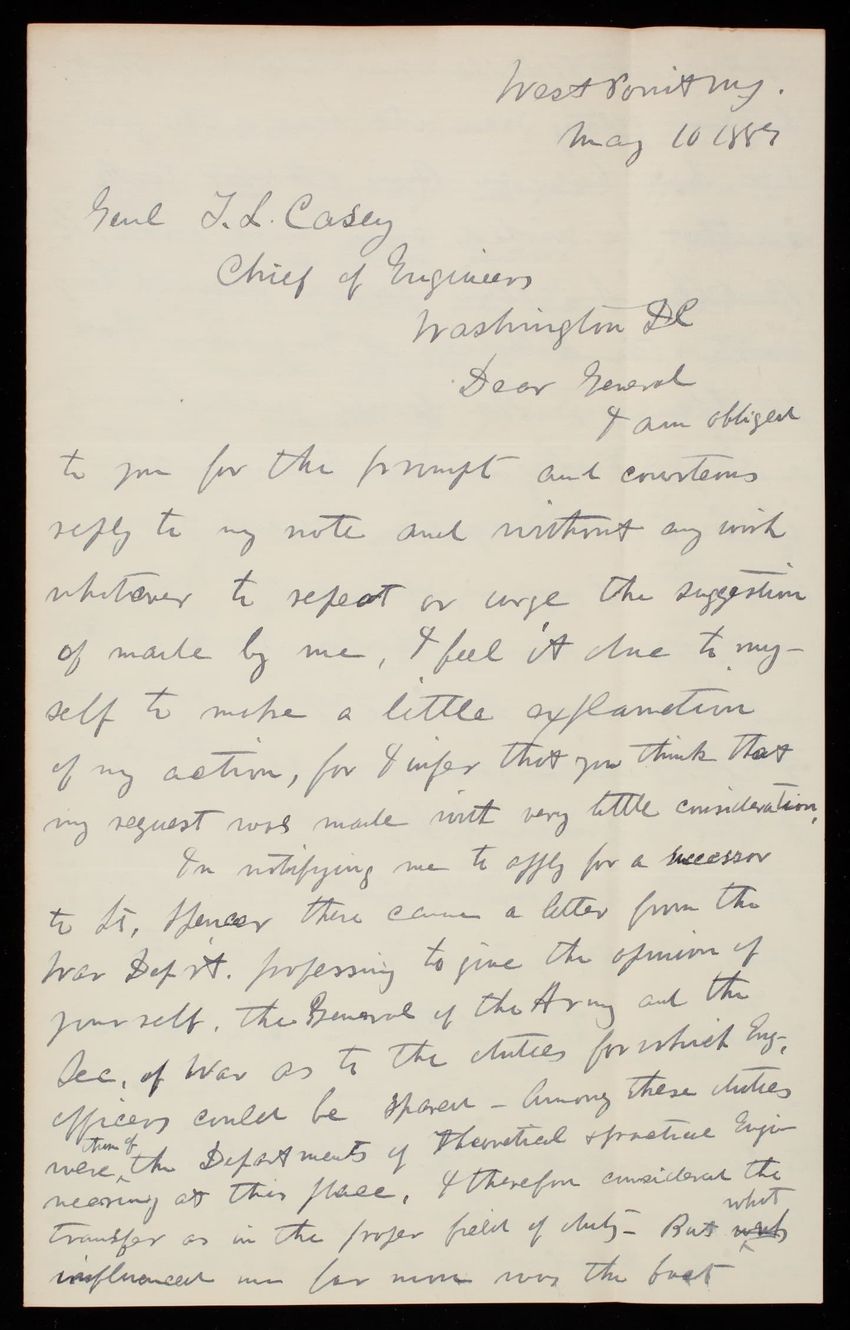 West Point N.Y.
May 10 1889
Genl T. L. Casey
Chief of Engineers
Washington DC
Dear General
I am obliged
to you for the prompt and courteous
reply to my note and without any wish
whatever to repeat or urge the suggestion
of made by me, I feel it due to my-
self to make a little explanation
of my action, for I infer that you think that
my request was made with very little consideration,
In notifying me to apply for a successor
to Lt. Spencer there came a letter from the
War Dep't. professing to give the opinion of
yourself, the General of the Army and the
Sec. of War as to the duties for which Eng.
officers could be spared - Among these duties
were, them of the Departments of theoretical & practical Engi-
neering at this place, I therefore considered the
transfer as in the proper field of duty - But what
influenced me far more was the fact